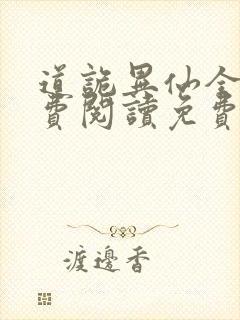 道詭異仙全
費閱讀免費
渡邊香